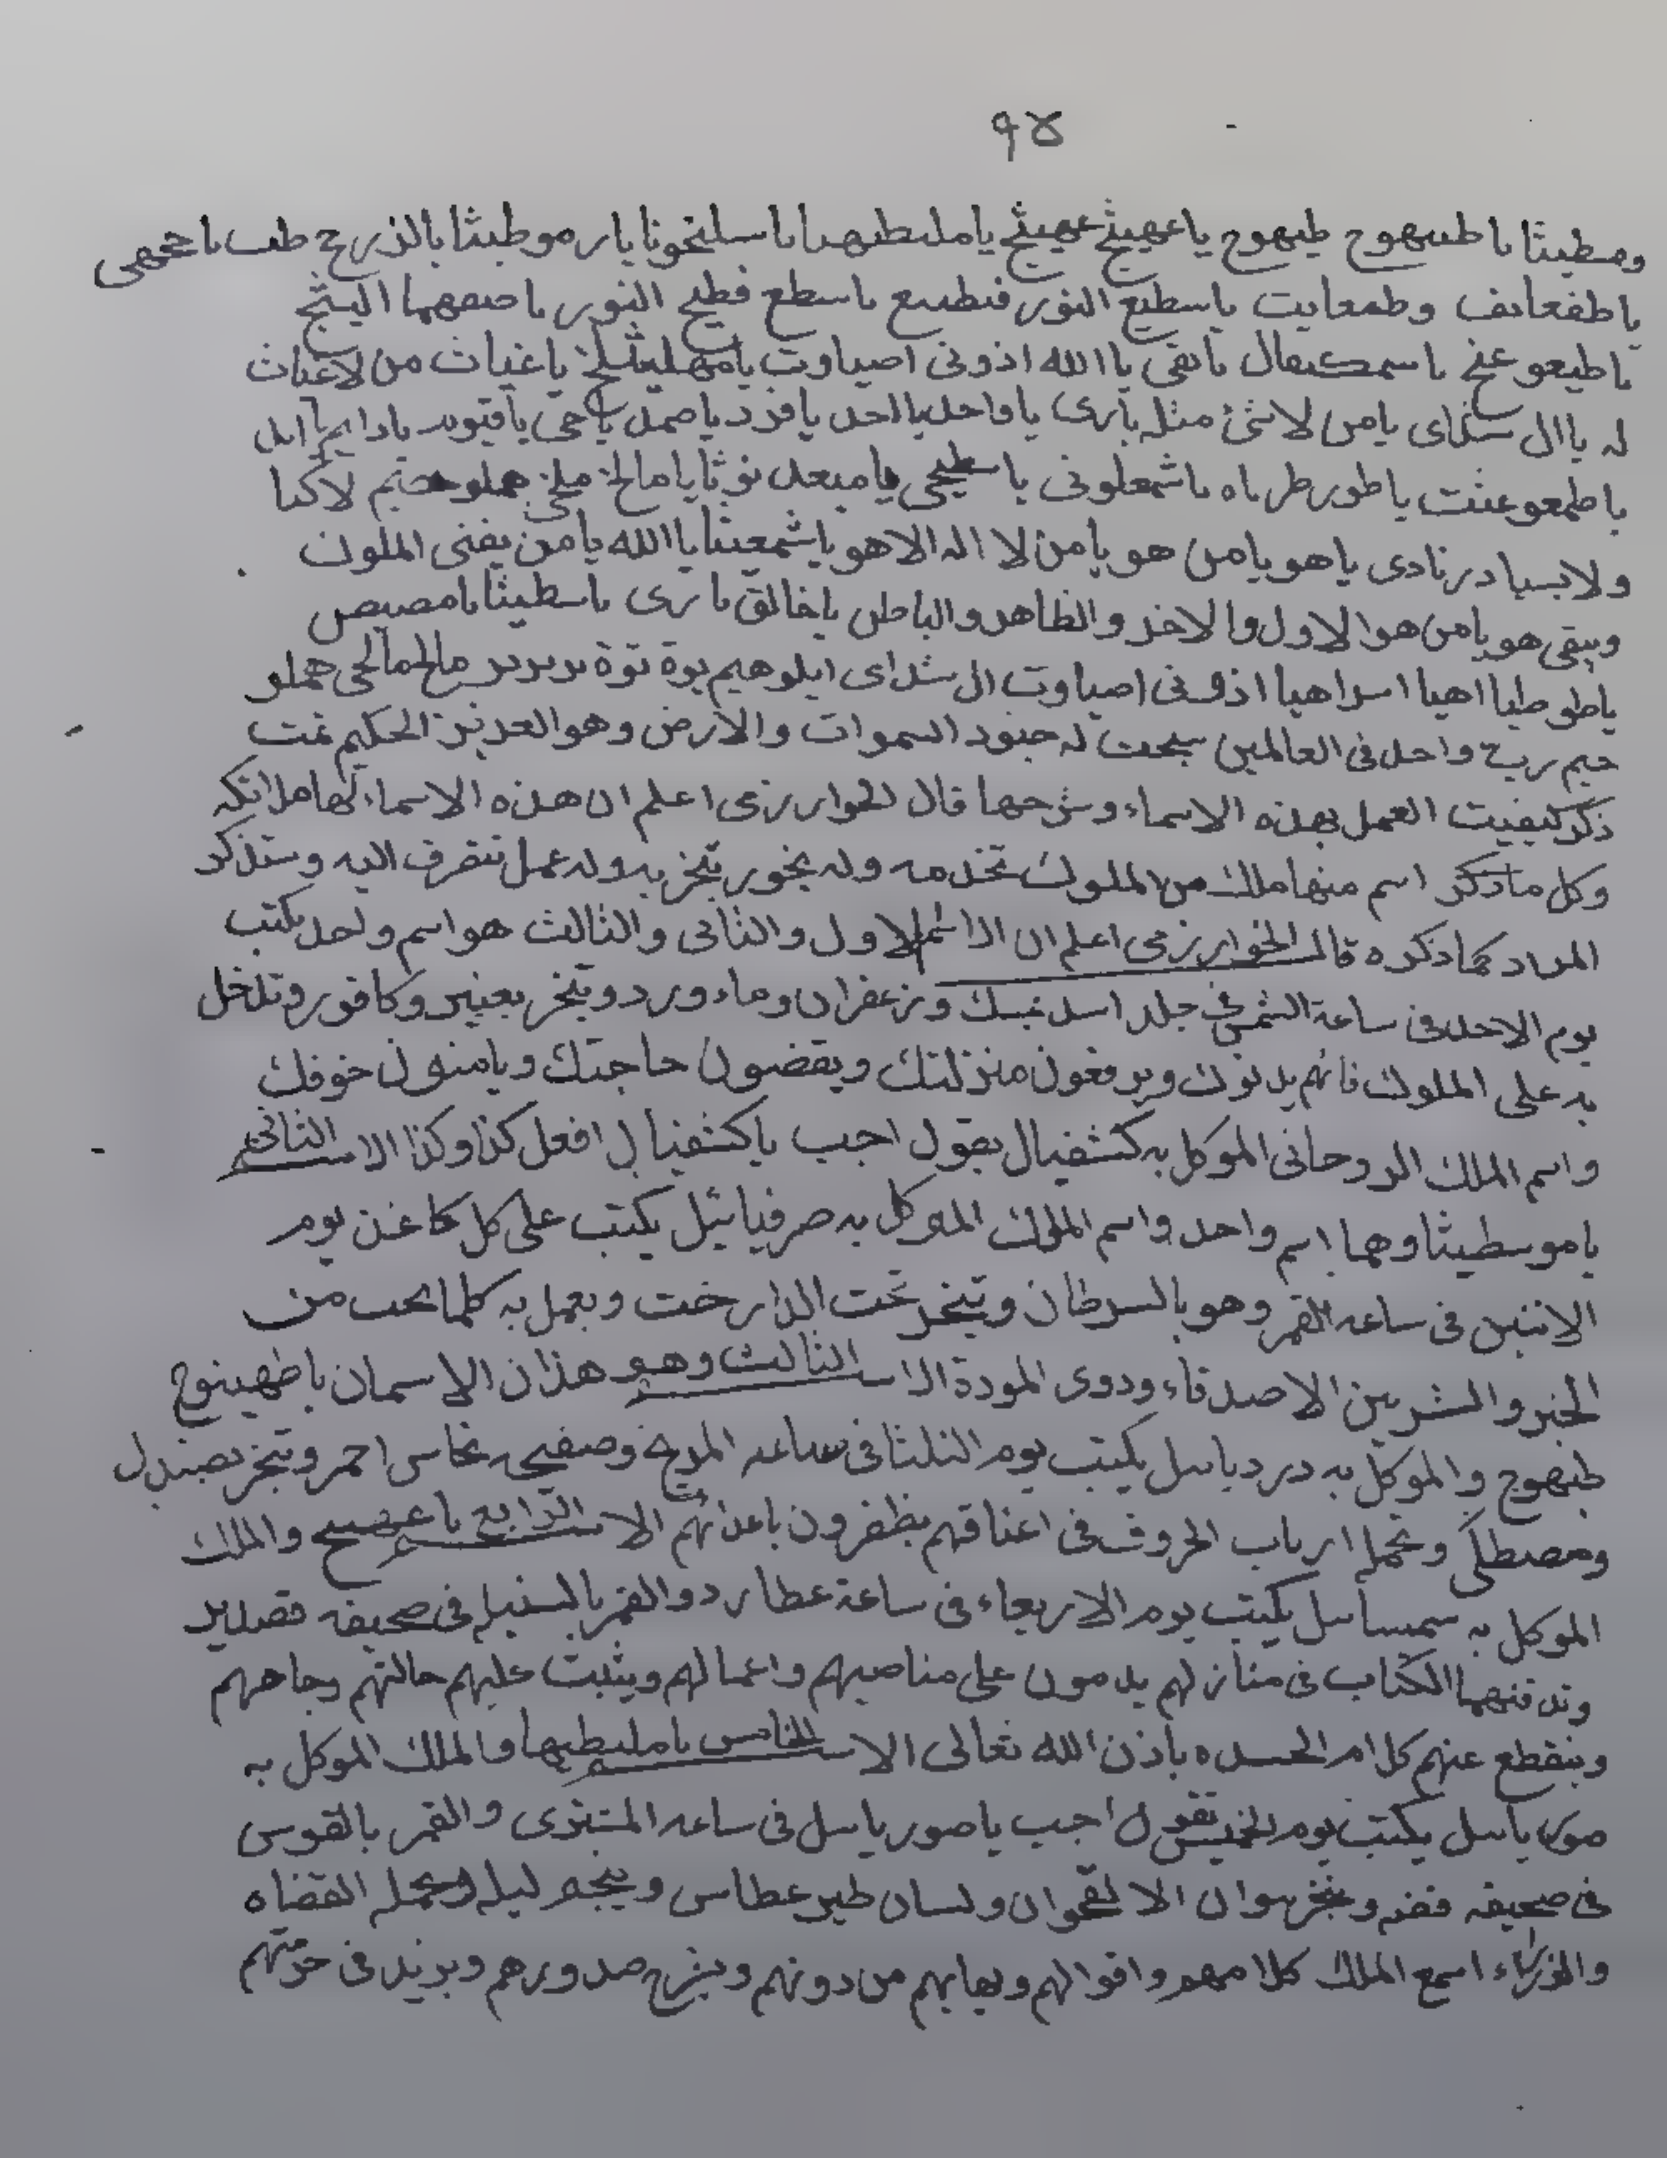 ٩٤
ومطيثا يا طيهوج طيهوج يا عهيثج عهيثج يا مليطهيا يا سليخوثا يا رموطبثا بالذرح طب يا
يا طفعايف وطمعايت يا سطيع النور فطيع يا سطع فطيح النور يا
يا طيعوعنخ يا يا نقى يا الله اذونى اصباوت يا مهليثلخ يا غياث من لاغياث
له يا ال شداى يا من لا شئ مثله يا برى يا واحد يا احد يا فرد يا صمد يا حى يا قيوم يا دايم يا ابدى
يا طمعوعنثت يا طورطرياه يا شمعلونى يا سطيحى يا ميعدنوثا يا مالخ ملخ لاكبا
ولا بسيا درنادى يا هو يا من هو يا من لا اله الا هو يا شمعيثا يا الله يا من يفنى الملوك
ويبقى هو يا من هو الاول والاخر والظاهر والباطن يا خالق يا برى يا سطيثا يا
يا طوطيا اهيا اسراهيا اذونى اصباوت ال شداى ايلوهيم بوة توة بربربر مالخ مالخى هملو
حيم رب واحد فى العالمين سبحت له جنود السموات والارض وهو العزيز الحكيم تمت
ذكر كيفيت العمل بهذه الاسماء وشرحها قال الخوارزمى اعلم ان هذه الاسماء لها ملائكه
وكل ما ذكر اسم منها ملك من الملوك تخدمه وله بخور تبخر به وله عمل تتصرف اليه وستذكر
المراد كما ذكره قال الخوارزمى اعلم ان الاسم الاول والثانى والثالث هو اسم واحد يكتب
يوم الاحد فى ساعة الشمس فى جلد اسد بمسك وزعفران وماء ورد وتبخر بعنبر وكافور وتدخل
به على الملوك فانهم يدنوك ويرفعون منزلتك ويقضون حاجتك ويامنون خوفك
واسم الملك الروحانى الموكل به كشفيال يقول اجب يا كشفيال افعل كذا وكذا الاسم الثانى
يا موسطيثا وهما اسم واحد واسم الملك الموكل به صرفيائيل يكتب على كل كاغد يوم
الاثنين فى ساعه القمر وهو بالسرطان وتبخر تحت الدارخت ويعمل به كلما يحب من
الخير والمشر بين الاصدقاء ودوى المودة الاسم الثالث وهو هذان الاسمان يا طهينوج
طيهوج والموكل به دردياييل يكتب يوم الثلثا فى ساعه المريخ وصفيحه نحاس احمر وتبخر بصندل
ومصطكى وتحمله ارباب الحروف فى اعناقهم يظفرون باعدائهم الاسم الرابع يا عهيثج والملك
الموكل به سمساييل يكتب يوم الاربعاء فى ساعة عطارد والقمر بالسنبله فى صحيفه قصدير
وتدفنهما الكتاب فى منازلهم يدمون على مناصبهم واعمالهم ويثبت عليهم حالتهم وجاههم
وينقطع عنهم كلام الحسده باذن الله تعالى الاسم الخامس يا مليطيها والملك الموكل به
صورياييل يكتب يوم الخميس تقول اجب يا صورياييل فى ساعه المشترى والقمر بالقوس
فى صحيفه فضه وتبخر بوان الا لقحوان ولسان طير عطاس وينجم ليله وتحمله القضاه
والوزراء اسمع الملك كلامهم واقوالهم ويهابهم من دونهم وينشرح صدورهم ويزيد فى حرمتهم